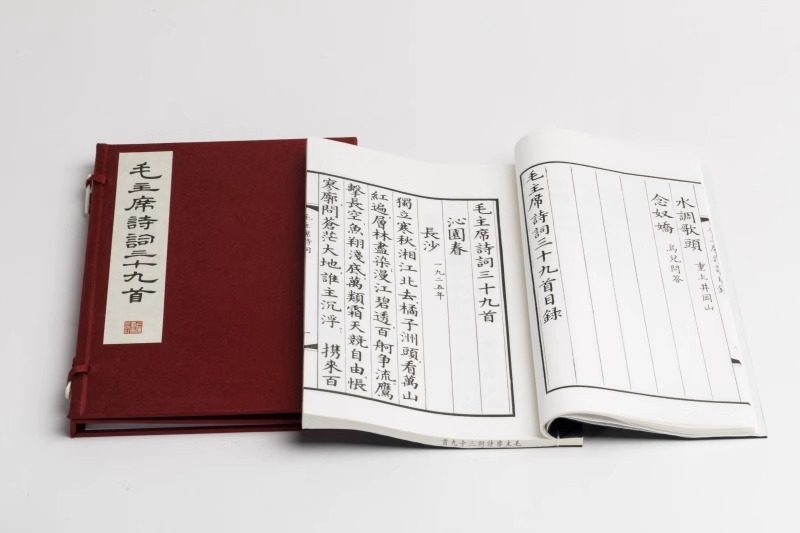 毛主席詩詞三十九首
水調歌頭 重上井岡山
念奴嬌 鳥兒問答
毛主席詩詞三十九首目録
毛主席詩詞三十九首
沁園春
長沙 一九二五年
獨立寒秋湘江北去橘子洲頭看萬山
紅遍層林盡染漫江碧透百舸爭流鷹
擊長空魚翔淺底萬類霜天競自由悵
寥廓問蒼茫大地誰主沉浮 携來百
毛主席詩詞三十九首